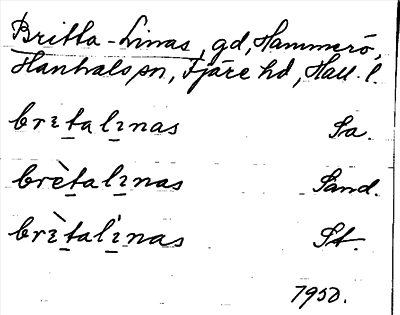 Britta-Linas, gd, Hammerö,
Hanhals sn, Fjäre hd, Hall. l.
brɪtalɪnas Sa.
brètalɪnas Sand.
brɪ̀talɪ́nas St.
1950.